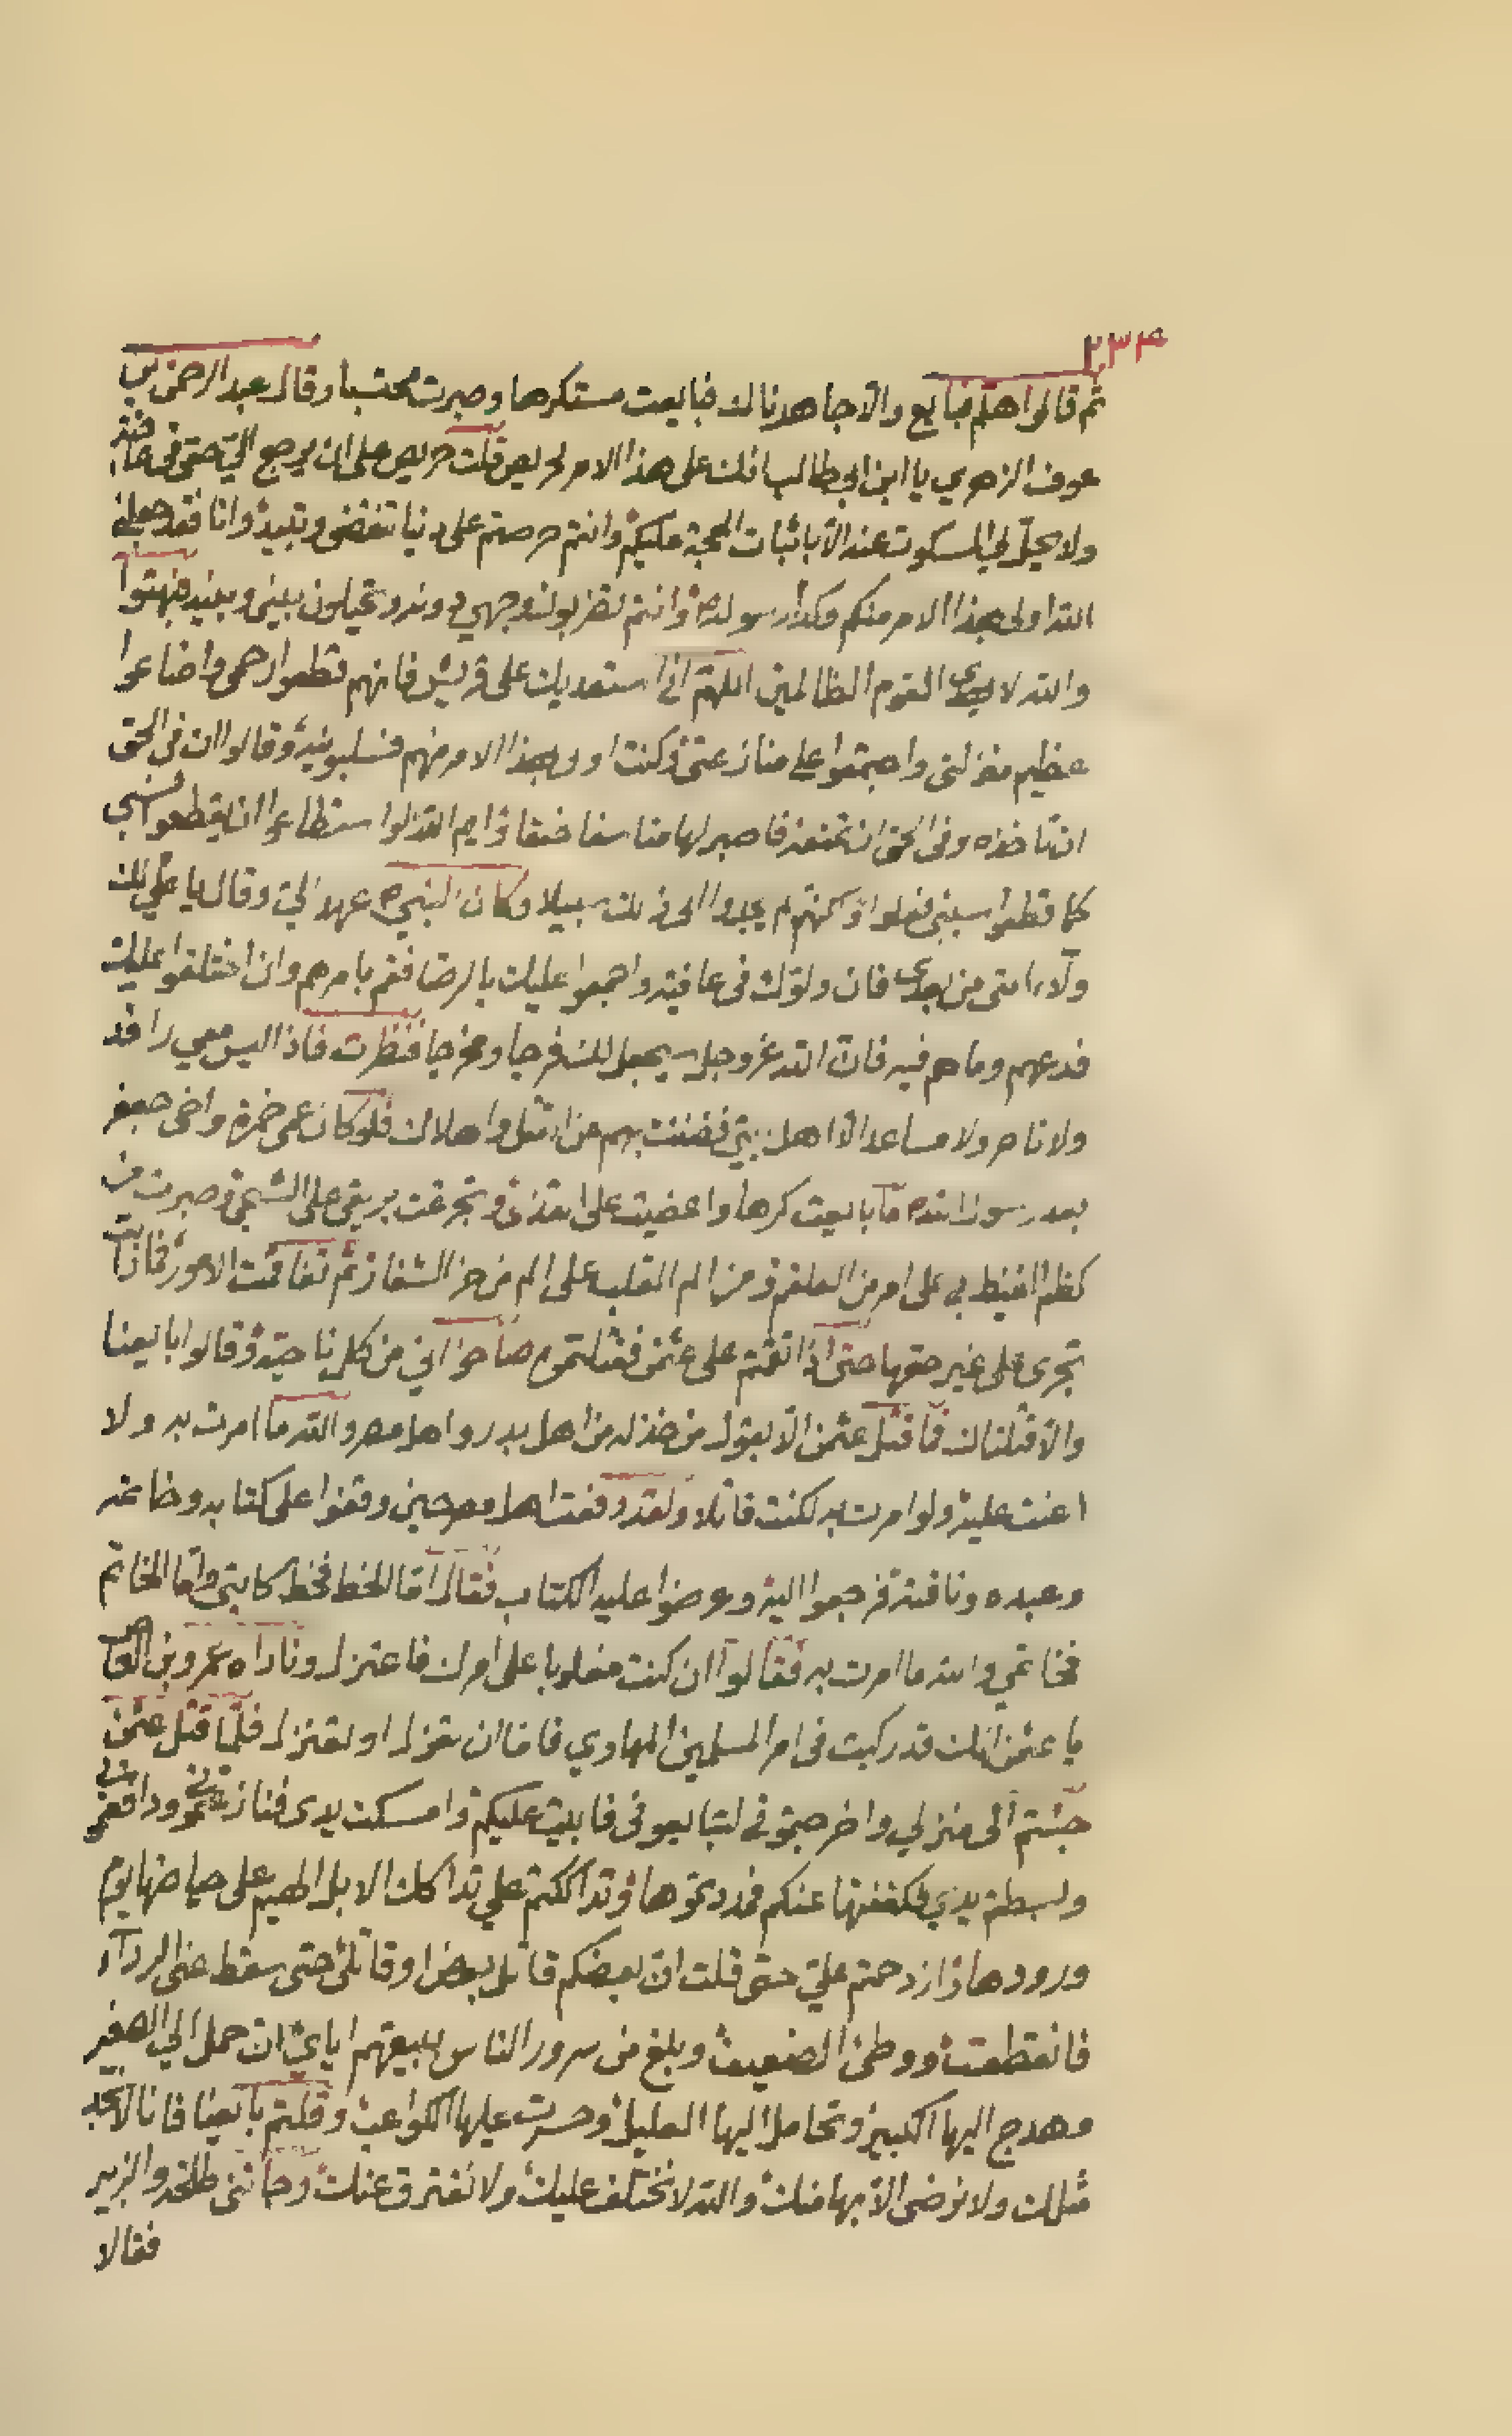 ٢٣٤
ثم قالوا هلم فبايع والا جاهدناك فبايعت مستكرها وصبرت محتسبا وقال عبد الرحمن بن
عوف الزهري يا ابن ابي طالب انك على هذا الامر لحريص قلت حريص على ان يرجع الي حقي في عافية
ولا يحل لي السكوت عنه الا باثبات الحجة عليكم وانتم حرصتم على دنيا تنقضي وتبيد وانا فقد جعلني
الله اولى بهذا الامر منكم وكذا رسوله وانتم تضربون وجهي دونه وتحيلون بيني وبينه فبهتوا
والله لا يهدى القوم الظالمين اللهم اني استعديك على قريش فانهم قطعوا رحمى واضاعوا
عظيم منزلتى واجتمعوا على منازعتى كنت اولى بهذا الامر منهم فسلبونيه وقالوا ان فى الحق
ان تاخذه وفى الحق ان تمنعه فاصبر لها متاسفا حنقا وايم الله لو استطاعوا ان يقطعوا نسبي
كما قطعوا سببى فعلوا ولكنهم لم يجدوا الى ذلك سبيلا وكان النبي عهد الي وقال يا علي لك
ولاء امتى من بعدى فان ولوك فى عافية واجمعوا عليك بالرضا فقم بامرهم وان اختلفوا عليك
فدعهم وما هم فيه فان الله عز وجل سيجعل لك فرجا ومخرجا فنظرت فاذا ليس معي رافد
ولا ناصر ولا مساعد الا اهل بيتي فضننت بهم عن القتل والهلاك فلو كان عمى حمزة واخى جعفر
بعد رسول الله ما بايعت كرها واغضيت على القذى وتجرعت بريقى على الشجى وصبرت من
كظم الغيظ بي على امر من العلقم ومن الم القلب على الم من حز الشفار ثم تفاقمت الامور فما زالت
تجرى على غير حقها حتى اذا انقمتم على عثمن فقتلتموه صاحوا بي من كل ناحية وقالوا بايعنا
والا قتلناك فما قتل عثمن الا بعون من خذله من اهل بدر واهل مصر والله ما امرت به ولا
اعنت عليه ولو امرت به لكنت قاتلا ولقد دفعت اهل مصر حين وقفوا على كتابه وخاتمه
وعبده وناقته فرجعوا اليه وعرضوا عليه الكتاب فقال اما الخط فخط كاتبى واما الخاتم
فخاتمي والله ما امرت به فقالوا ان كنت مغلوبا على امرك فاعتزل وناداه عمرو بن العاص
يا عثمن انك قد ركبت فى امر المسلمين المهاوي فاما ان تعزل او لتعتزل فلما قتل عثمن
جئتم الى منزلي واخرجتموني لتبايعونى فابيت عليكم وامسكت يدى فنازعتموني ودافعتموني
وبسطتم يدي فكففتها عنكم فمددتموها وتداككتم علي تداكك الابل الهيم على حياضها يوم
ورودها وازدحمتم علي حتى قلت ان بعضكم قاتل بعض او قاتلى حتى سقط عنى الرداء
فانقطعت ووطئ الضعيف وبلغ من سرور الناس ببيعتهم اياي ان حمل الي الصغير
وهدج اليها الكبير وتحامل اليها العليل وحسرت عليها الكواعب وقلتم بايعنا فانا لا نجد
مثلك ولا نرضى الا بها منك والله لا نختلف عليك ولا نفترق عنك وجائنى طلحة والزبير
فقالا